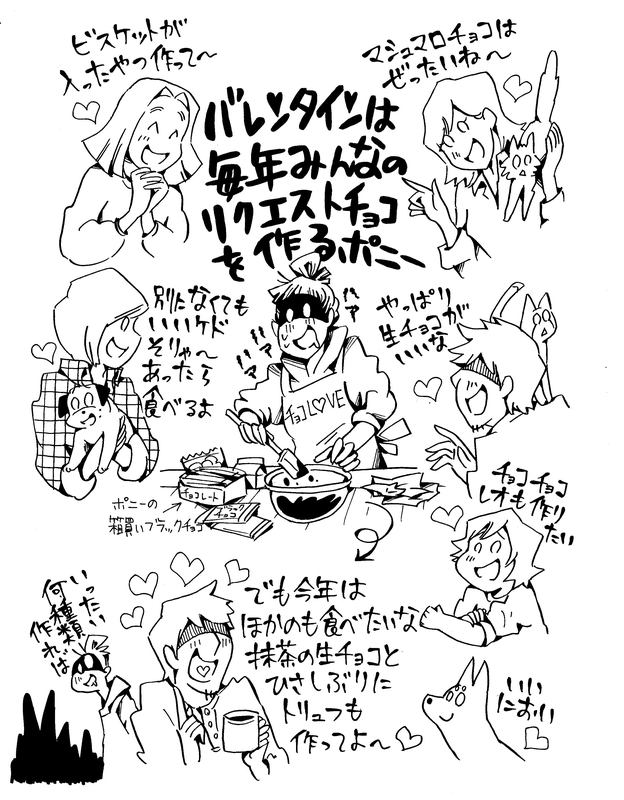 ビスケットが
入ったやつ作って〜
マシュマロチョコは
ぜったいね〜
バレンタインは
毎年みんなの
リクエストチョコ
を作るポニー
別になくても
いいケド
そりゃ〜
あったら
食べるよ
ドドドア
ドドア
チョコLOVE
やっぱり
生チョコが
いいな
チョコレート
チョコ
ポニーの
箱買いブラックチョコ
チョコチョコ
レオも作り
たい
いったい
何種類
作れば
でも今年は
ほかのも食べたいな
抹茶の生チョコと
ひさしぶりに
トリュフも
作ってよ〜
いい
におい